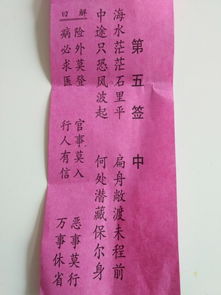 第五签 中
海水茫茫石里平 扁身敞渡未程前
中途只恐风波起 何处潜藏保尔身
解曰
险外莫登 官事莫入 恶事莫行
病必求医 行人有信 万事休省